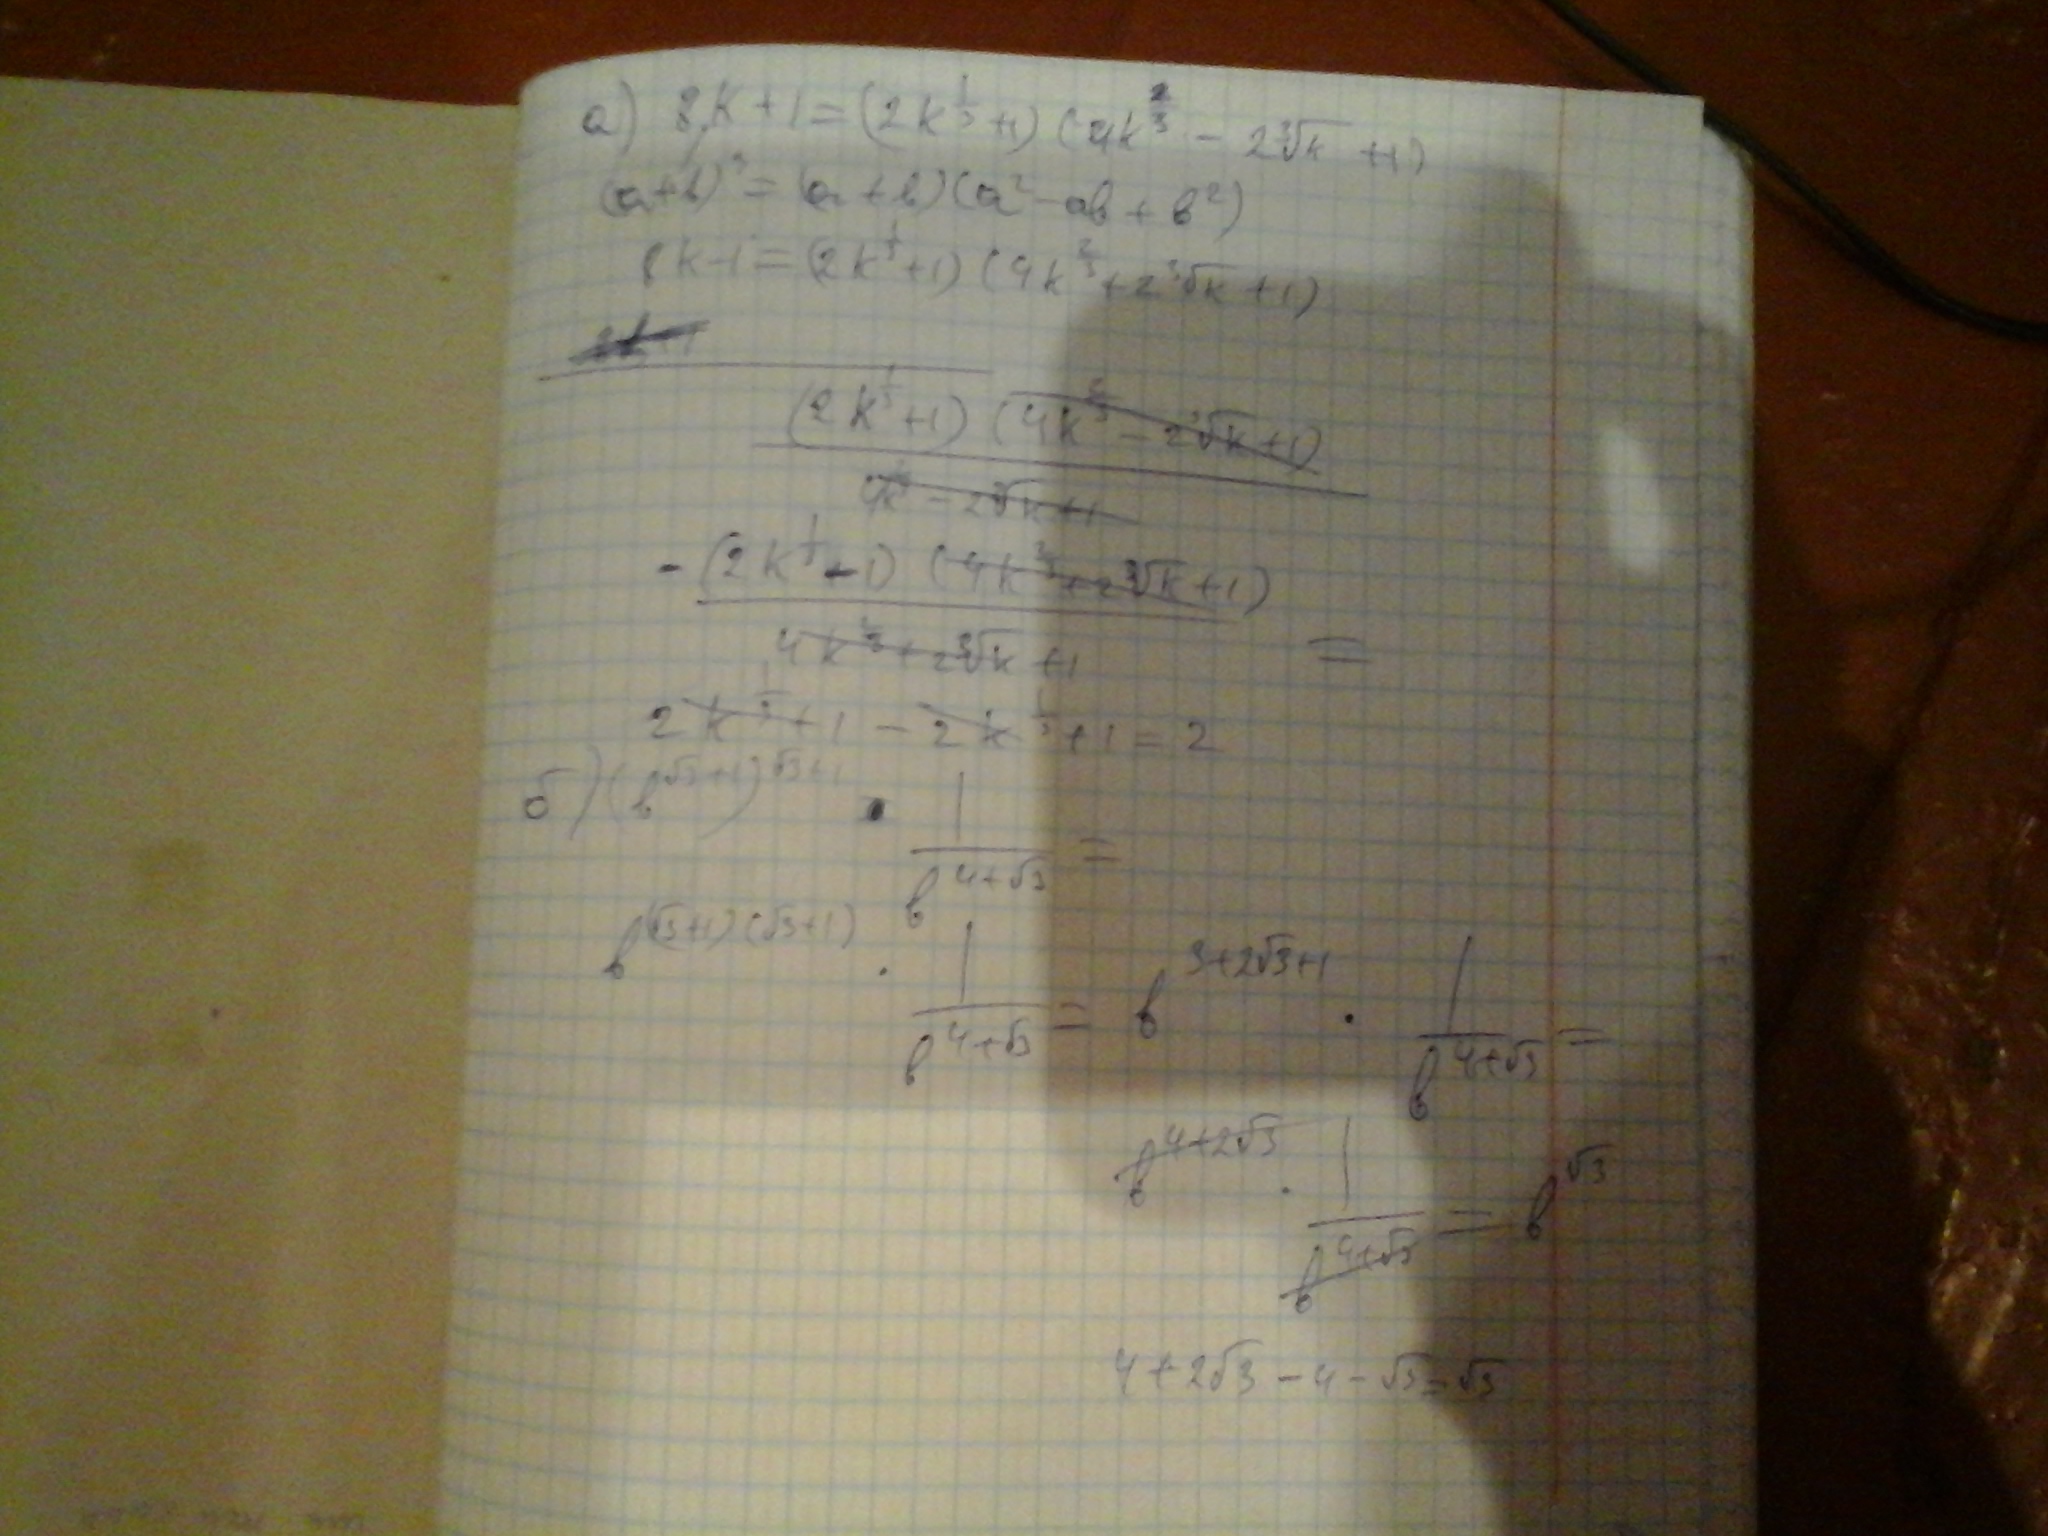 а) 8k+1=(2k^{1/3}+1)(4k^{2/3} - 2∛k +1)
(a+b)^3=(a+b)(a²-ab+b²)
8k-1=(2k^{1/3}+1)(4k^{2/3}+2∛k+1)
(2k^{1/3}+1)(4k^{2/3}-2∛k+1)
4k^{2/3}-2∛k+1
-(2k^{1/3}-1)(4k^{2/3}+2∛k+1)
4k^{2/3}+2∛k+1 =
2k^{1/3}+1-2k^{1/3}+1=2
б) (b^{√3+1})^{√3+1} · 1/b^{4+√3} =
b^{(√3+1)(√3+1)} · 1/b^{4+√3} = b^{3+2√3+1} · 1/b^{4+√3} =
b^{4+2√3} · 1/b^{4+√3} = b^{√3}
4+2√3-4-√3=√3